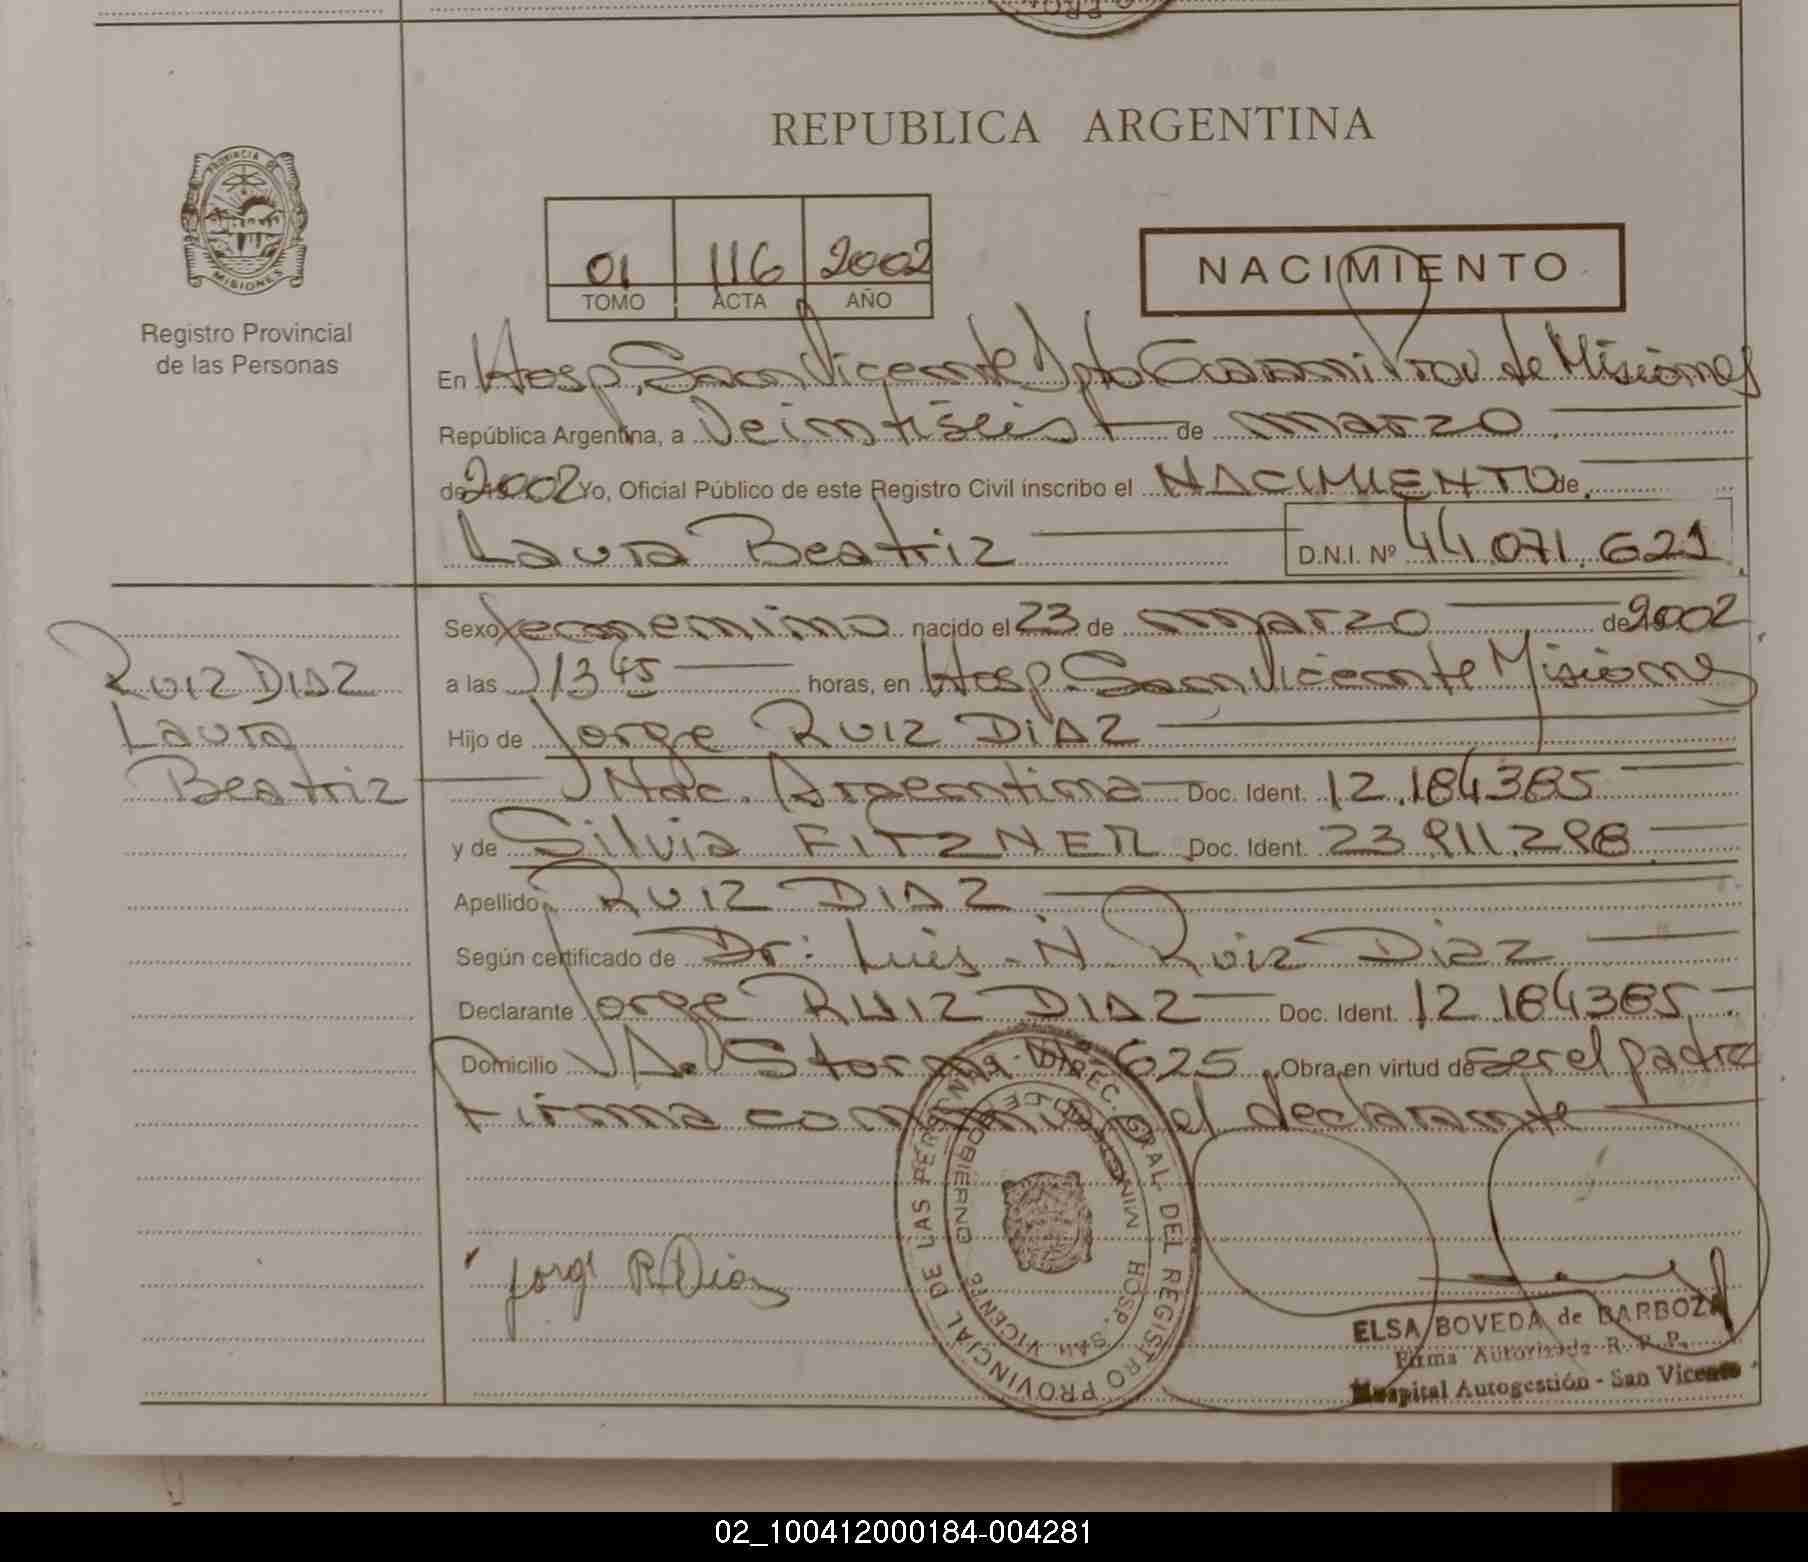 REPUBLICA ARGENTINA
PROVINCIA DE
MISIONES
Registro Provincial
de las Personas
01 116 2002
TOMO ACTA AÑO
NACIMIENTO
En Hosp. San Vicente Dpto Guaraní Prov de Misiones
República Argentina, a Veintiseis de marzo
de 2002 Yo, Oficial Público de este Registro Civil inscribo el NACIMIENTO de
Laura Beatriz D.N.I. Nº 44.071.621
Sexo femenino nacido el 23 de marzo de 2002
a las 13 45 horas, en Hosp. San Vicente Misiones
Hijo de Jorge RUIZ DIAZ
Nac. Argentina Doc. Ident. 12.184385
y de Silvia FITZNER Doc. Ident. 23.911.298
Apellido RUIZ DIAZ
Según certificado de Dr: Luis N. Ruiz Diaz
Declarante Jorge RUIZ DIAZ Doc. Ident. 12 184385
Domicilio A. Storni 625 Obra en virtud de ser el padre
Firma conmigo el declarante
RUIZ DIAZ
Laura
Beatriz
Jorge R. Diaz
DIREC. GRAL. DEL REGISTRO PROVINCIAL DE LAS PERSONAS
MINISTERIO DE GOBIERNO
HOSP. SAN VICENTE
ELSA BOVEDA de BARBOZA
Firma Autorizada R. P. P.
Hospital Autogestión - San Vicente
02_100412000184-004281